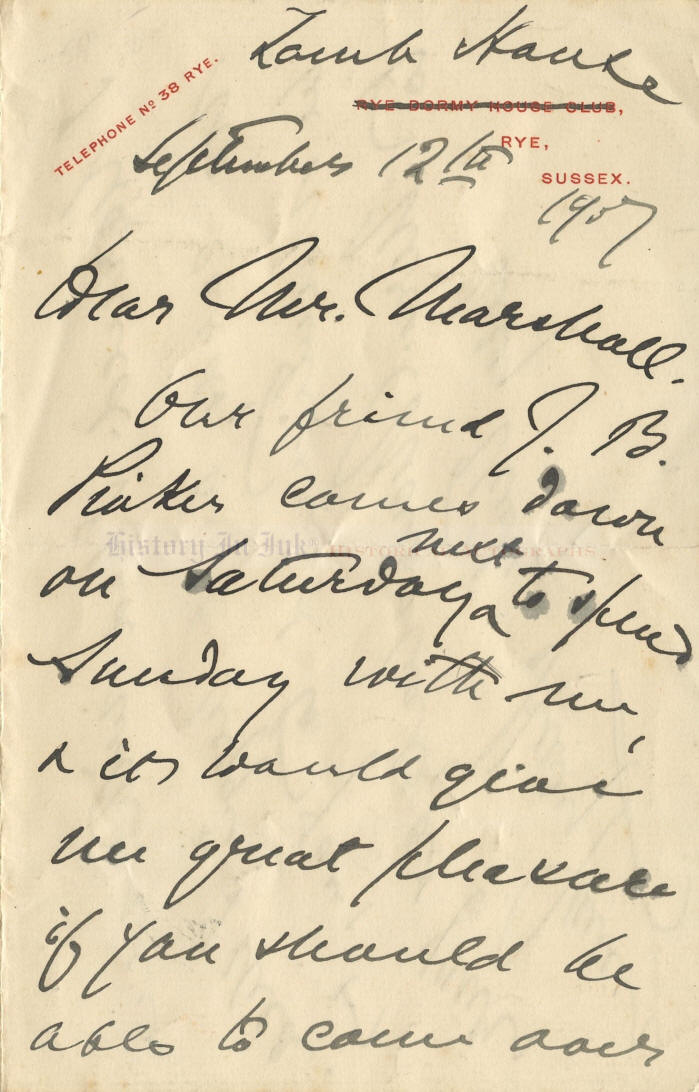 Lamb House
TELEPHONE Nº 38 RYE.
RYE DORMY HOUSE CLUB,
RYE,
September 12th
SUSSEX.
1907
Dear Mr. Marshall.
Our friend J. B.
Pinker comes down
History In Ink HISTORICAL AUTOGRAPHS
on Saturday next to spend
Sunday with me,
& it would give
me great pleasure
if you should be
able to come over